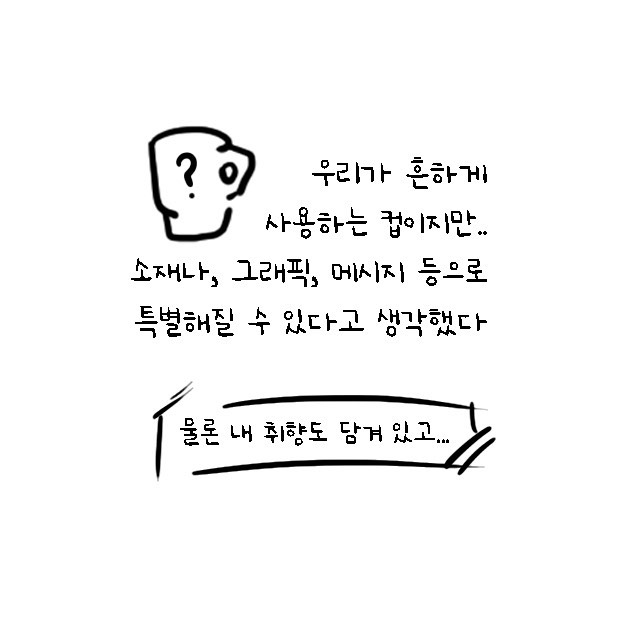 ?
우리가 흔하게
사용하는 컵이지만..
소재나, 그래픽, 메시지 등으로
특별해질 수 있다고 생각했다
물론 내 취향도 담겨 있고...